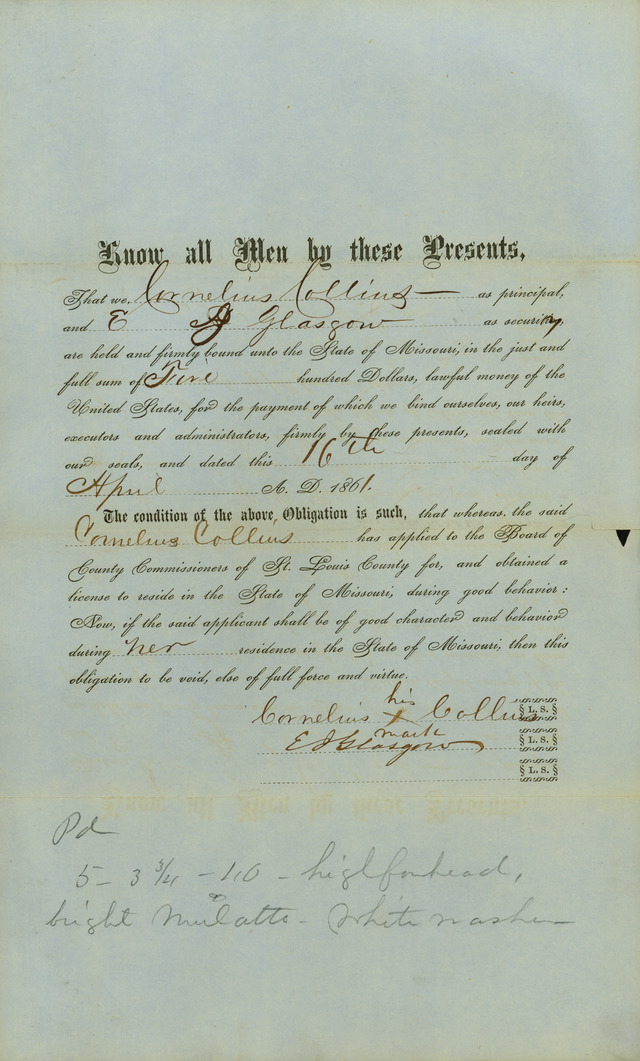 Know all Men by these Presents,
That we, Cornelius Collins as principal,
and E A Glasgow as security,
are held and firmly bound unto the State of Missouri, in the just and
full sum of Five hundred Dollars, lawful money of the
United States, for the payment of which we bind ourselves, our heirs,
executors and administrators, firmly by these presents, sealed with
our seals, and dated this 16th day of
April A. D. 1861.
The condition of the above Obligation is such, that whereas the said
Cornelius Collins has applied to the Board of
County Commissioners of St. Louis County for, and obtained a
license to reside in the State of Missouri, during good behavior:
Now, if the said applicant shall be of good character and behavior
during her residence in the State of Missouri, then this
obligation to be void, else of full force and virtue.
his
Cornelius X Collins L. S.
mark
E A Glasgow L. S.
L. S.
Pd
5 - 3 3/4 - 110 - high forhead,
bright Mulatto - White washer